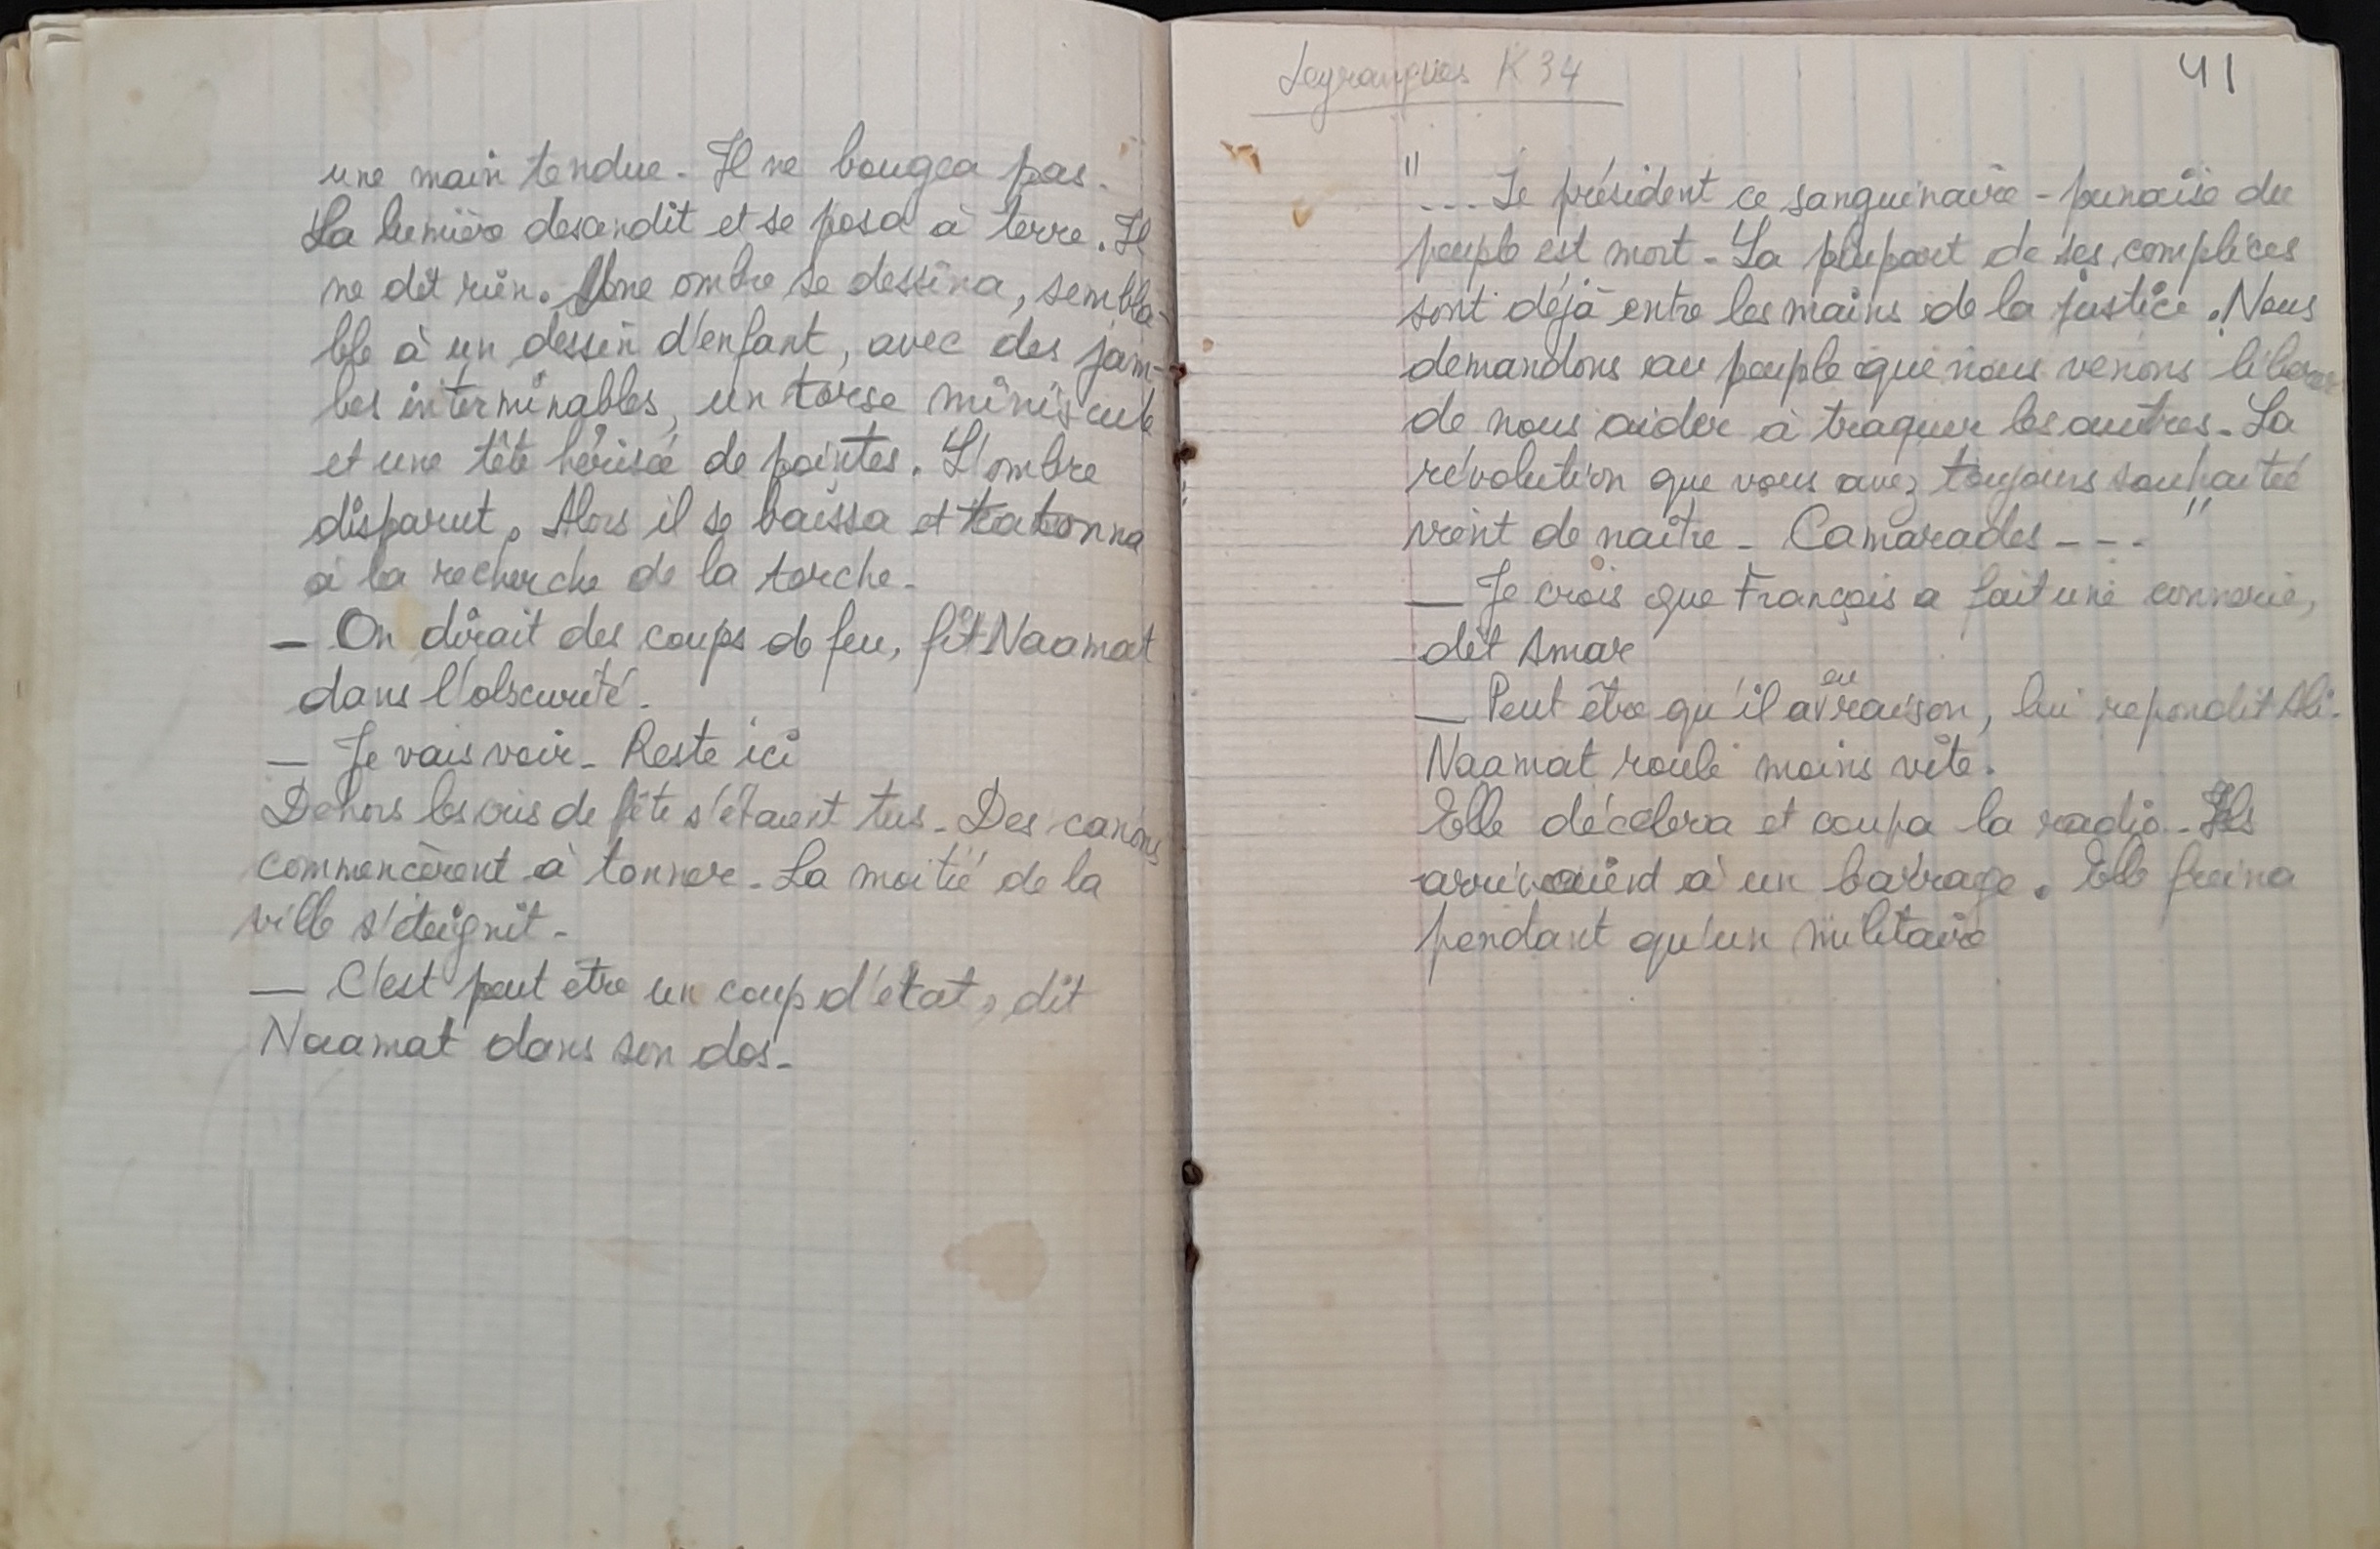 une main tendue - Il ne bougea pas.
La lumière descendit et se posa à terre. Il
ne dit rien. Une ombre se dessina, sembla-
ble à un dessin d'enfant, avec des jam-
bes interminables, un torse miniscule
et une tête hérisée de pointes. L'ombre
disparut. Alors il se baissa et tatonna
à la recherche de la torche.
— On dirait des coups de feu, fit Naamat
dans l'obscurité.
— Je vais voir - Reste ici
Dehors les cris de fête s'étaient tus - Des canons
commencèrent à tonner - La moitié de la
ville s'éteignit -
— C'est peut etre un coup d'état, dit
Naamat dans son dos -
K 34
41
"... Le président ce sanguinaire - punaise du
peuple est mort - La plupart de ses complices
sont déjà entre les mains de la justice. Nous
demandons au peuple que nous venons libérer
de nous aider à traquer les autres - La
révolution que vous avez toujours souhaitée
vient de naître - Camarades - - - "
— Je crois que François a fait une connerie,
dit Amar
— Peut être qu'il a eu raison, lui repondit Ali.
Naamat roule moins vite.
Elle décélera et coupa la radio - Ils
arrivaient à un barrage. Elle freina
pendant qu'un militaire